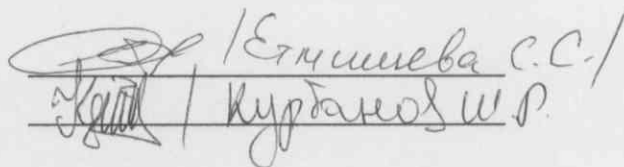 /Етмишева С.С./
/ Курбанов Ш.Р.